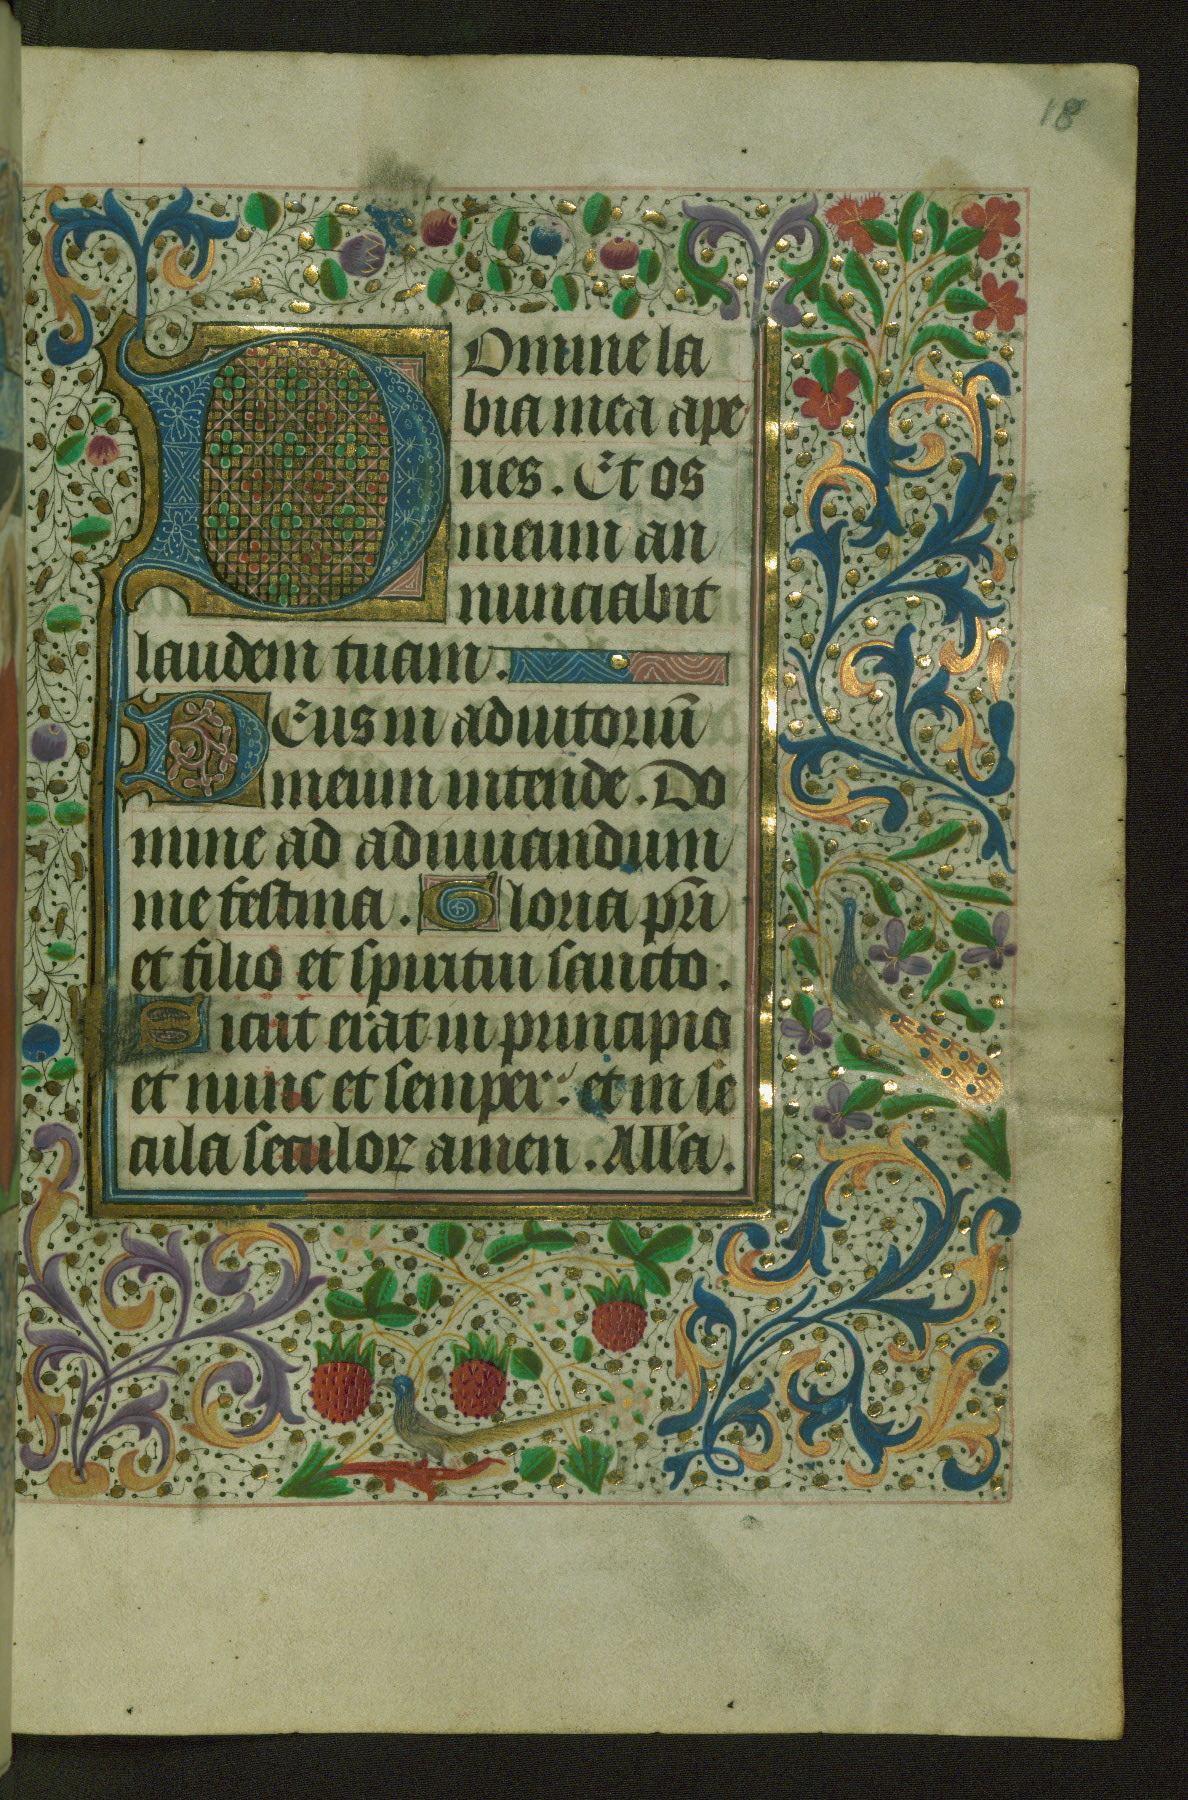 18
Domine la
bia mea ape
ries. Et os
meum an
nunciabit
laudem tuam.
Deus in adiutoriū
meum intende. Do
mine ad adiuuandum
me festina. Gloria pr̄i
et filio et spiritui sancto.
Sicut erat in principio
et nunc et semper: et in se
cula seculoꝝ amen. All'a.